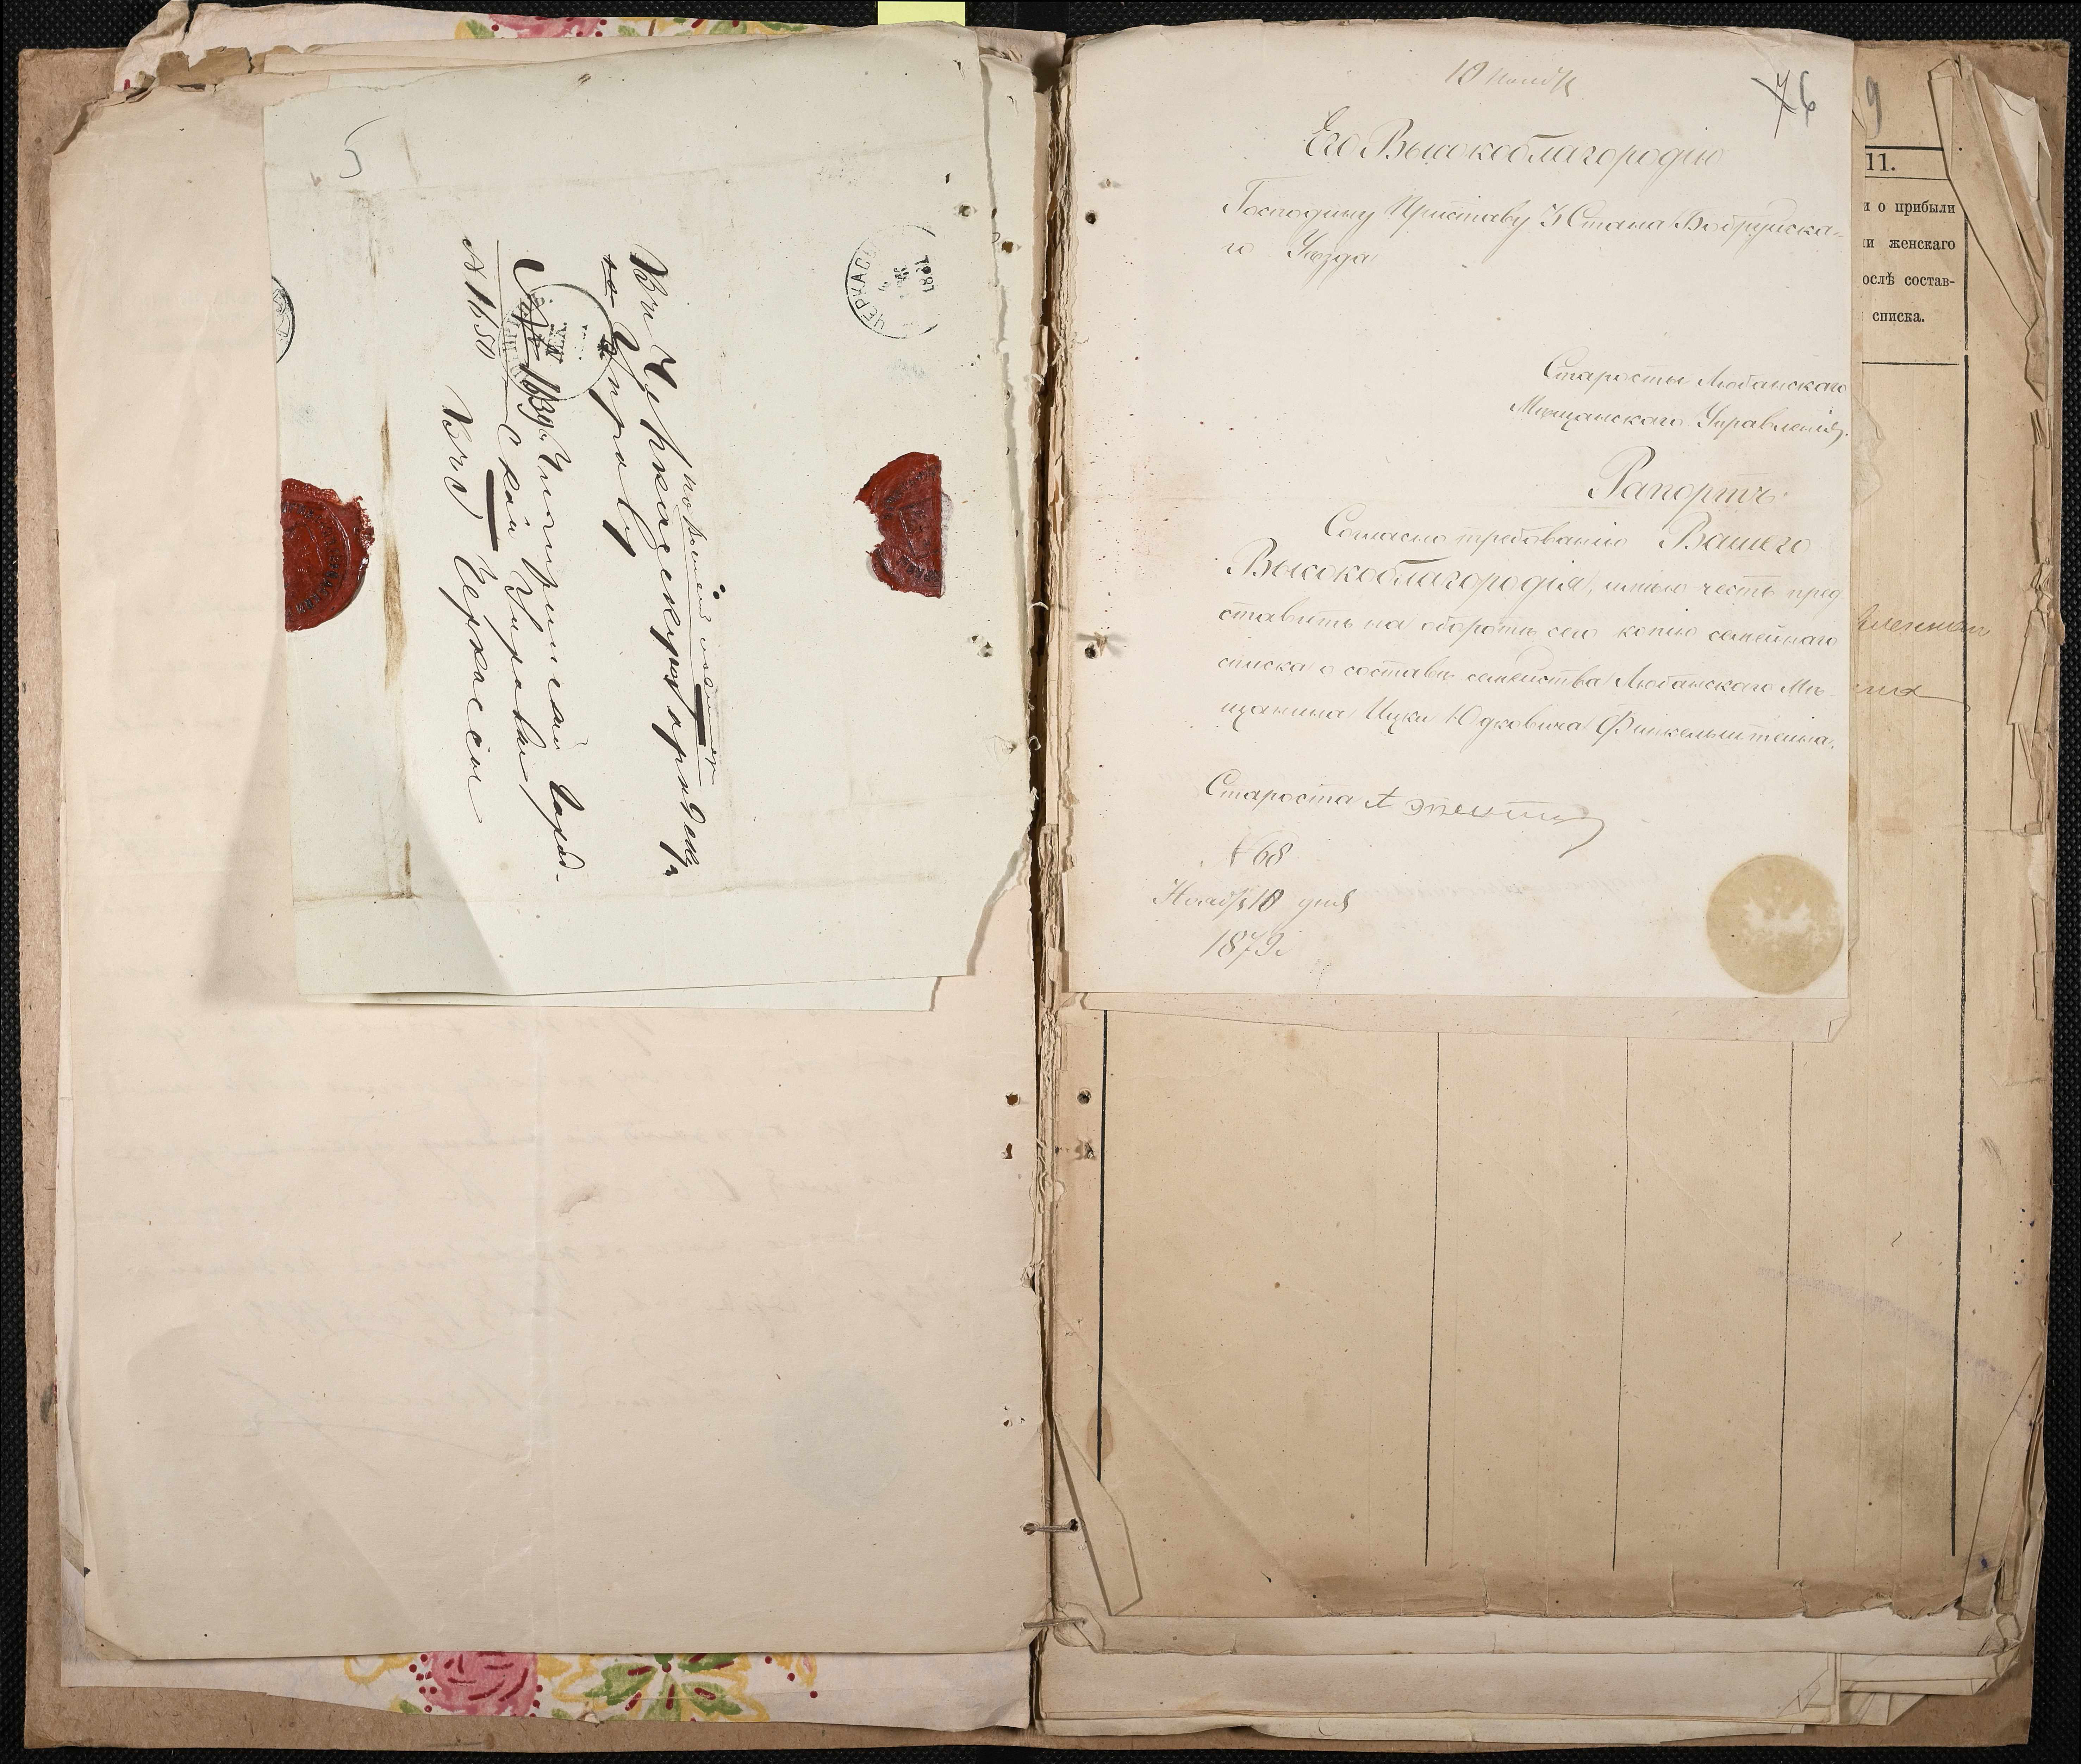 5
ЧЕРКАСС
1881
по воинской повинност
Въ Черкасскую Городску
ю Управу
№ 1639. Чигиринской Город-
ской Управы
№ 1650
Въ г. Черкассы
10 Ноября
76
9
Его Высокоблагородію
Господину Приставу 3 Стана Бобруйска-
го Уѣзда
Старосты Любанскаго
Мѣщанскаго Управленія.
Рапортъ
Согласно требованію Вашего
Высокоблагородія, имѣю честь пред
ставить на оборотѣ сего копію семейнаго
списка о составѣ семейства Любанскаго Мѣ-
щанина Ицки Юдковича Финкельштейна.
Староста А
№ 68
Ноября 10 дня
1879 г.
11.
о прибыли
женскаго
ослѣ состав-
списка.